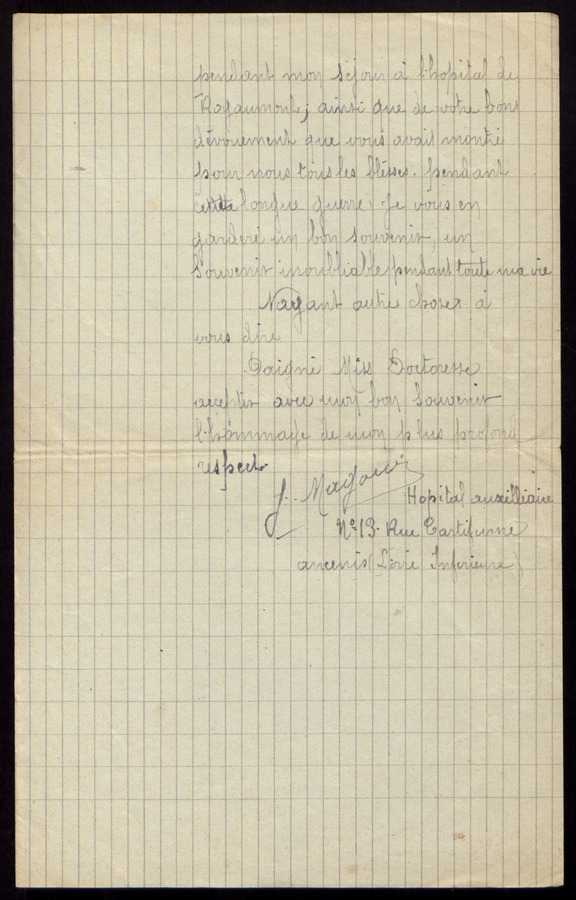 pendant mon séjour à l'hopital de
Royaumont; ainsi que de votre bons
dévouement que vous avait montré
pour nous tous les blésses. pendant
cette longue guerre. Je vous en
garderé un bon souvenir, un
Souvenir inoubliable pendant toute ma vie
Nayant autre choses à
vous dire
Daigné Miss Doctoresse
accepter avec mon bon Souvenir
l'hommage de mon plus profond
respect.
J. Magouin
Hopital auxilliaire
N° 13. Rue
ancenis (Loire Inférieure)